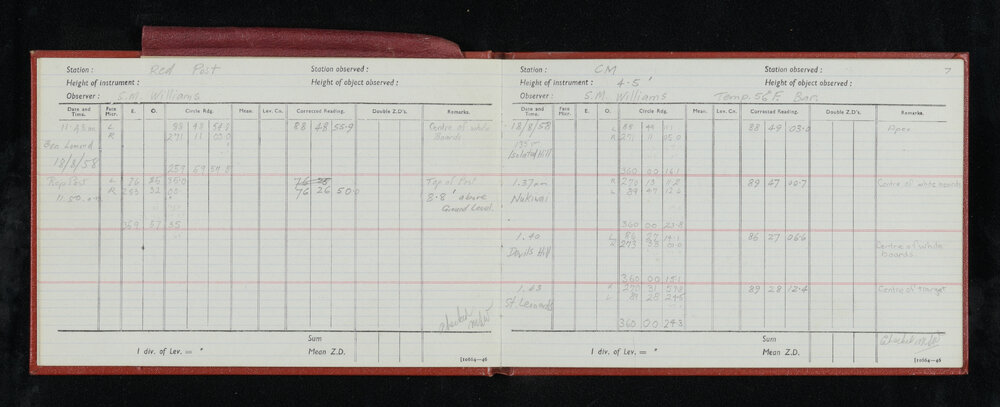 Station : Red Post Station observed :
Height of instrument : Height of object observed :
Observer : S.M. Williams
Date and Time. Face Micr. E. O. Circle Rdg. Mean. Lev. Co. Corrected Reading. Double Z.D's. Remarks.
11.48am L 88 48 54.8 88 48 55.9 Centre of white
R 271 11 03.0 Boards
Ben Lomond
18/8/58 359 59 57.8
Rep Post L 76 26 76 26 Top of Post
R 283 32 76 26 50.0 8.8' above
11.50 am Ground Level.
359 57 35
checked
Sum
1 div. of Lev. = " Mean Z.D.
[10664—46
7
Station : CM Station observed :
Height of instrument : 4.5' Height of object observed :
Observer : S.M. Williams Temp. 56°F. Bar.
Date and Time. Face Micr. E. O. Circle Rdg. Mean. Lev. Co. Corrected Reading. Double Z.D's. Remarks.
18/8/58 L 88 49 88 49 03.0 Apex
R 271 11 05.0
Isolated Hill
360 00 16.1
1.37pm R 270 13 11.2 89 47 00.7 Centre of white boards
Nukiwai L 89 47 12.6
360 00 23.8
1.40 L 86 27 14.1 86 27 06.6
Devils Hill R 273 33 01.0 Centre of white
boards.
360 00 15.1
1.43 R 270 31 59.8 89 28 12.4 Centre of target
St. Leonards L 89 28 24.5
360 00 24.3
Checked
Sum
1 div. of Lev. = " Mean Z.D.
[10664—46